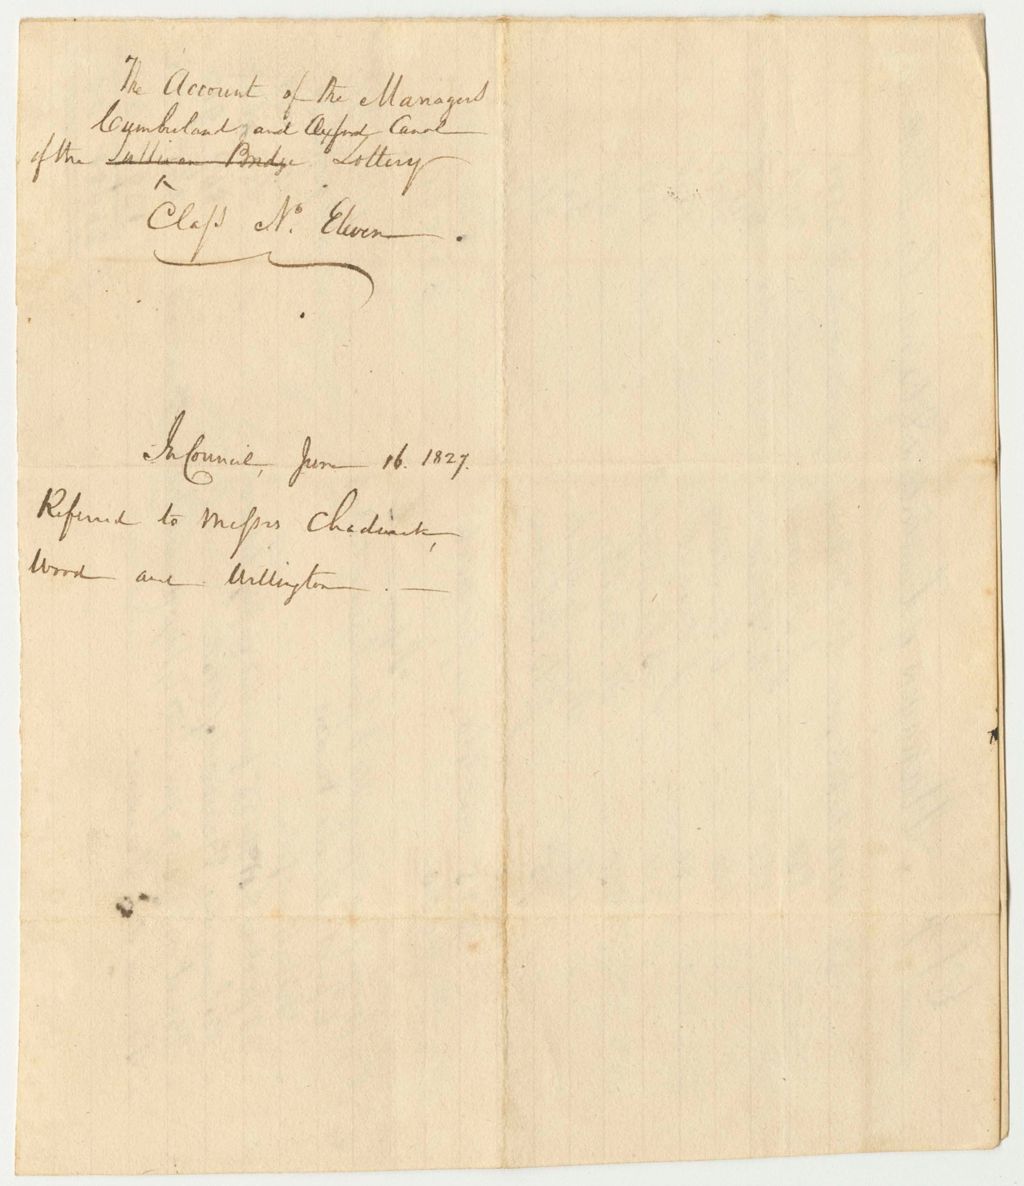 The Account of the Managers
Cumberland and Oxford Canal
of the Sullivan Bridge Lottery
^
Class No. Eleven.
In Council, June 16. 1827.
Referred to Messrs Chadwick,
Wood and Willington. —